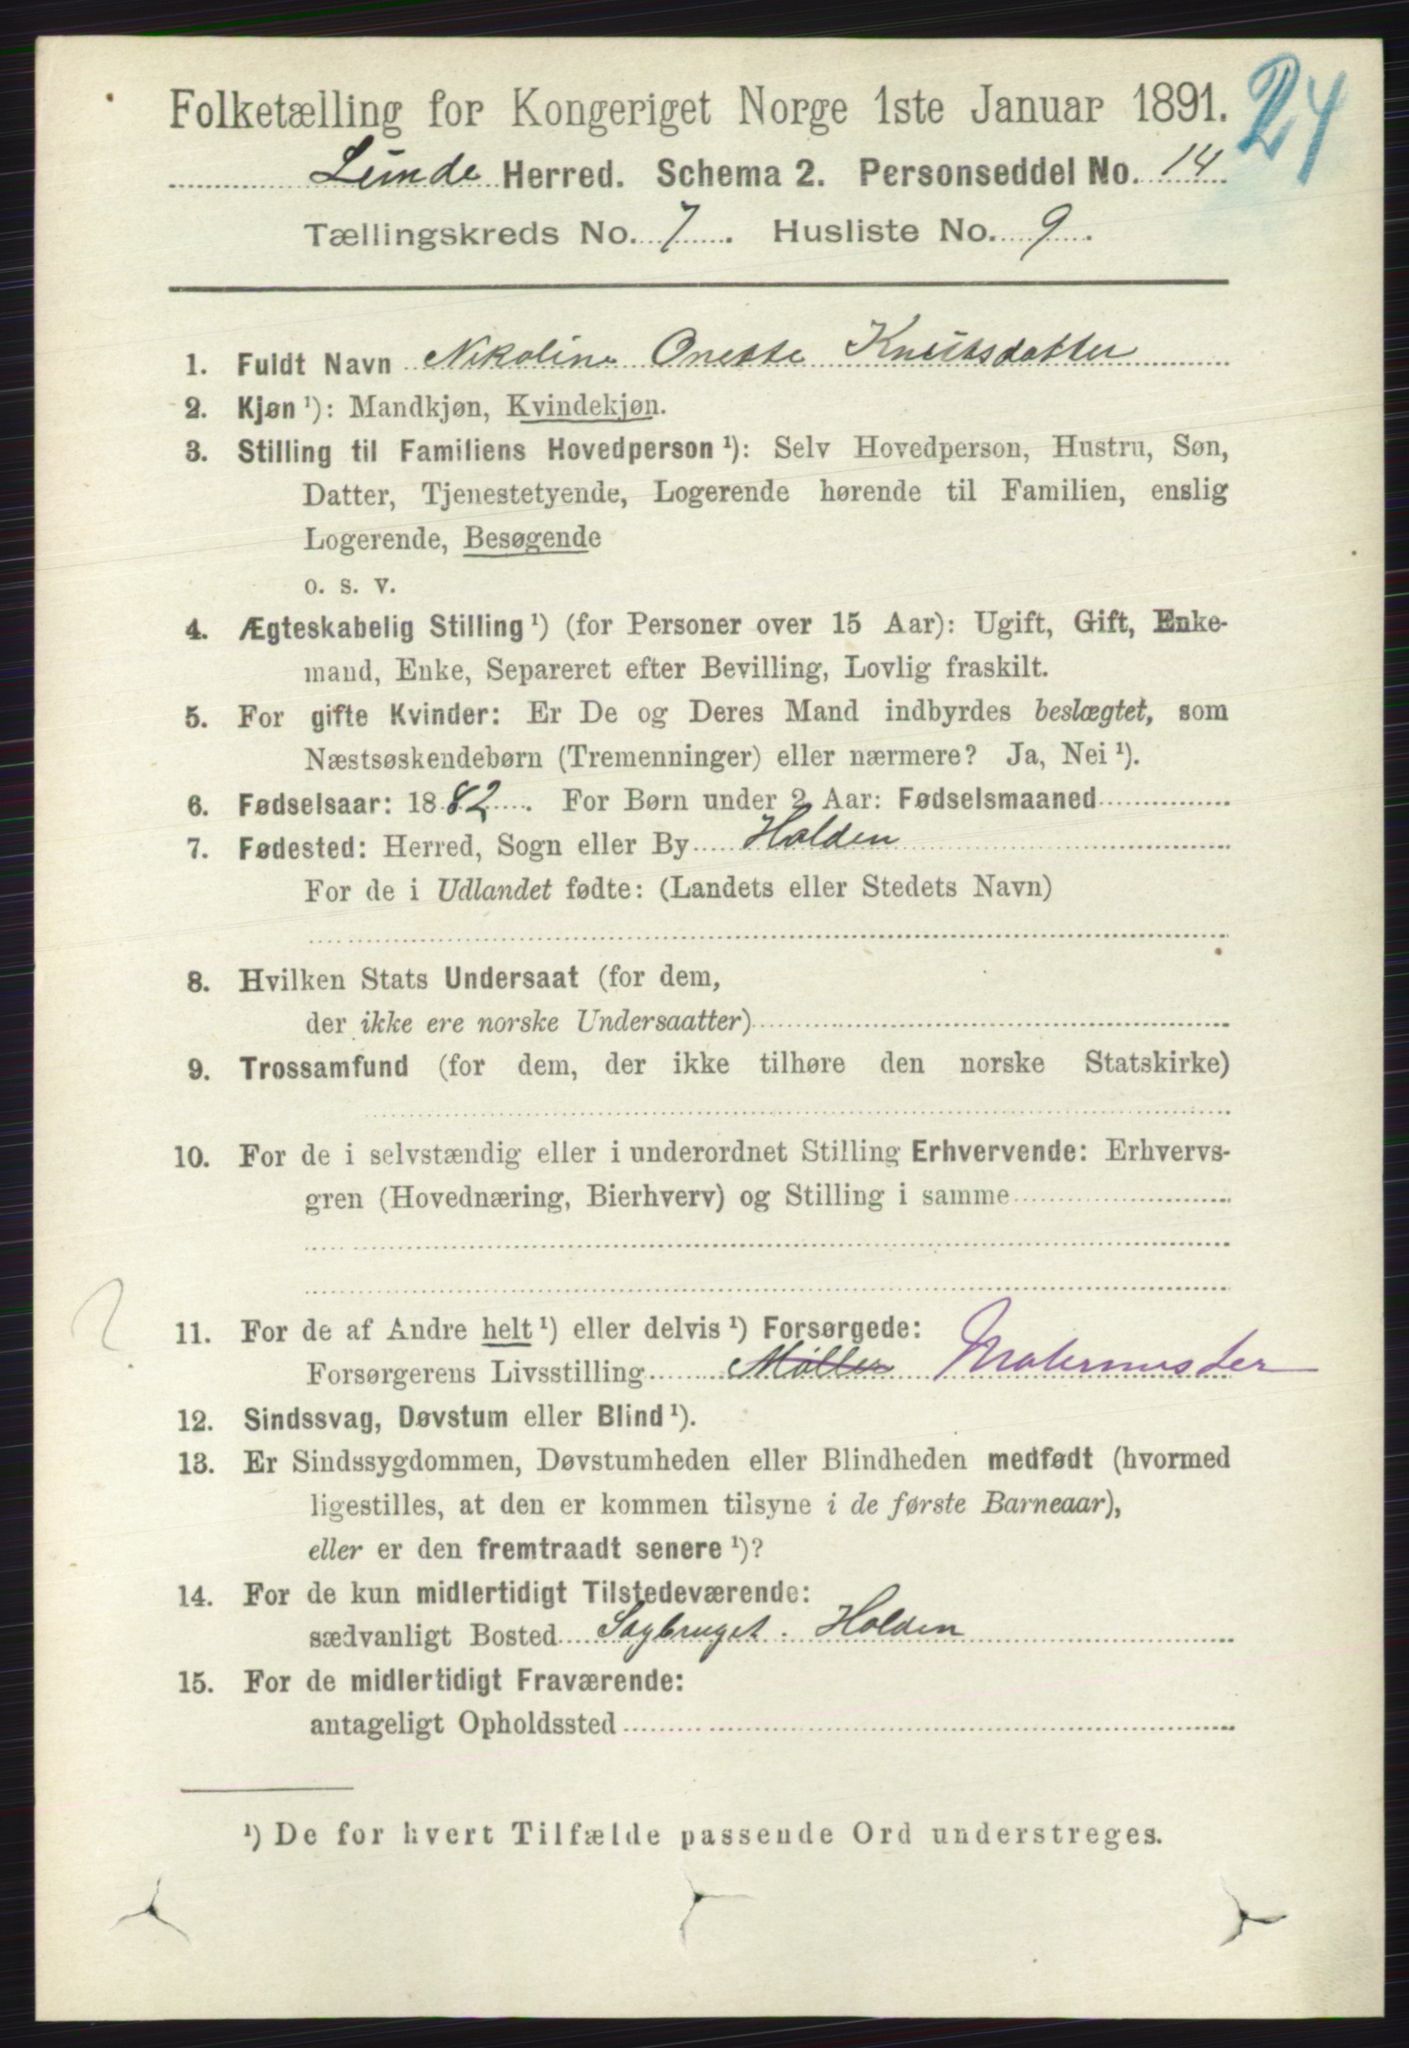 Folketælling for Kongeriget Norge 1ste Januar 1891.
24
Lunde Herred. Schema 2. Personseddel No. 14
Tællingskreds No. 7. Husliste No. 9.
1. Fuldt Navn Nikoline Onette Knutsdatter
2. Kjøn ¹): Mandkjøn, Kvindekjøn.
3. Stilling til Familiens Hovedperson ¹): Selv Hovedperson, Hustru, Søn,
Datter, Tjenestetyende, Logerende hørende til Familien, enslig
Logerende, Besøgende
o. s. v.
4. Ægteskabelig Stilling ¹) (for Personer over 15 Aar): Ugift, Gift, Enke-
mand, Enke, Separeret efter Bevilling, Lovlig fraskilt.
5. For gifte Kvinder: Er De og Deres Mand indbyrdes beslægtet, som
Næstsøskendebørn (Tremenninger) eller nærmere? Ja, Nei ¹).
6. Fødselsaar: 1882. For Børn under 2 Aar: Fødselsmaaned
7. Fødested: Herred, Sogn eller By Holden
For de i Udlandet fødte: (Landets eller Stedets Navn)
8. Hvilken Stats Undersaat (for dem,
der ikke ere norske Undersaatter)
9. Trossamfund (for dem, der ikke tilhøre den norske Statskirke)
10. For de i selvstændig eller i underordnet Stilling Erhvervende: Erhvervs-
gren (Hovednæring, Bierhverv) og Stilling i samme
11. For de af Andre helt ¹) eller delvis ¹) Forsørgede:
Forsørgerens Livsstilling Møller
12. Sindssvag, Døvstum eller Blind ¹).
13. Er Sindssygdommen, Døvstumheden eller Blindheden medfødt (hvormed
ligestilles, at den er kommen tilsyne i de første Barneaar),
eller er den fremtraadt senere ¹)?
14. For de kun midlertidigt Tilstedeværende:
sædvanligt Bosted Sagbruget. Holden
15. For de midlertidigt Fraværende:
antageligt Opholdssted
¹) De for hvert Tilfælde passende Ord understreges.